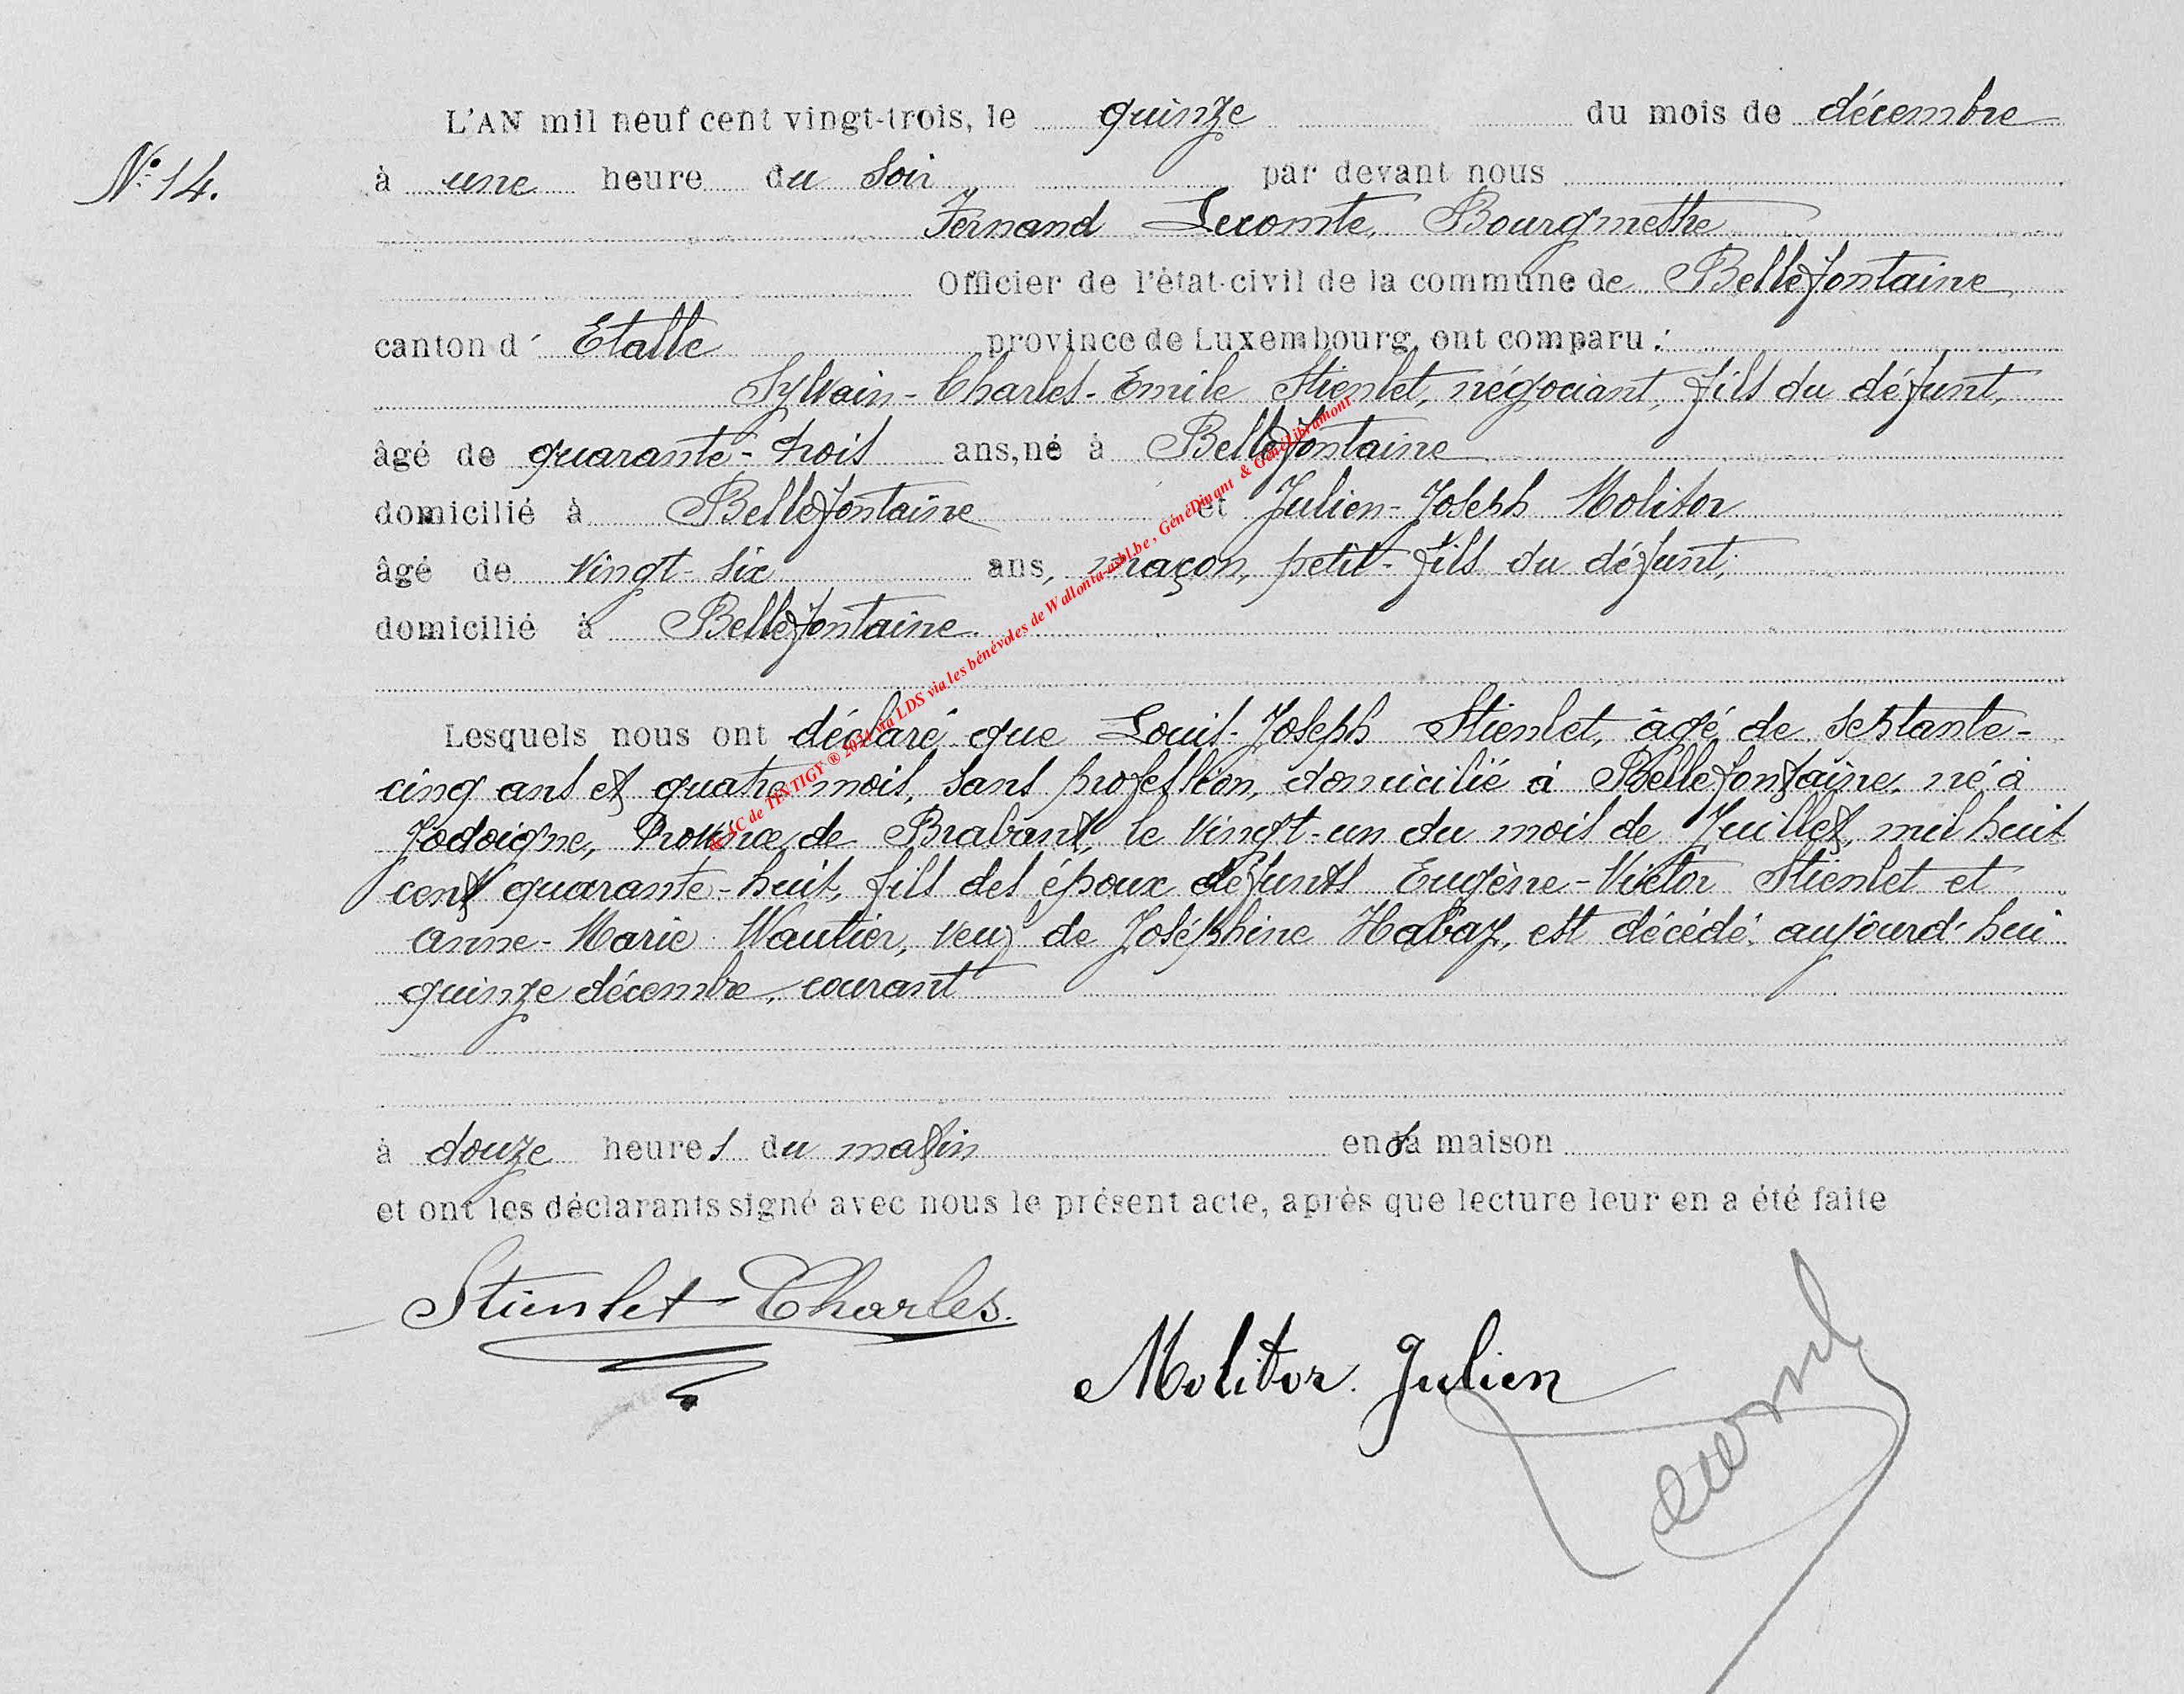 L'AN mil neuf cent vingt-trois, le quinze du mois de décembre
N° 14.
à une heure du soir par devant nous
Fernand Lecomte, Bourgmestre
Officier de l'état-civil de la commune de Bellefontaine
canton d' Etalle province de Luxembourg, ont comparu :
Sylvain-Charles-Emile Stienlet, négociant, fils du défunt,
âgé de quarante-trois ans, né à Bellefontaine
domicilié à Bellefontaine et Julien-Joseph Molitor
âgé de vingt-six ans, maçon, petit-fils du défunt,
domicilié à Bellefontaine.
Lesquels nous ont déclaré que Louis-Joseph Stienlet, âgé de septante-
cinq ans et quatre mois, sans profession, domicilié à Bellefontaine, né à
Jodoigne, Province de Brabant, le vingt-un du mois de Juillet, mil huit
cent quarante-huit, fils des époux défunts Eugène-Victor Stienlet et
Anne-Marie Wautier, veuf de Joséphine Habay, est décédé aujourd'hui
quinze décembre, courant
à douze heures du matin en sa maison
et ont les déclarants signé avec nous le présent acte, après que lecture leur en a été faite
Stienlet Charles.
Molitor. Julien
de AC de TINTIGY ® 2024 via LDS via les bénévoles de Wallonia-asbl.be , GénéDinant & GénéLibramont